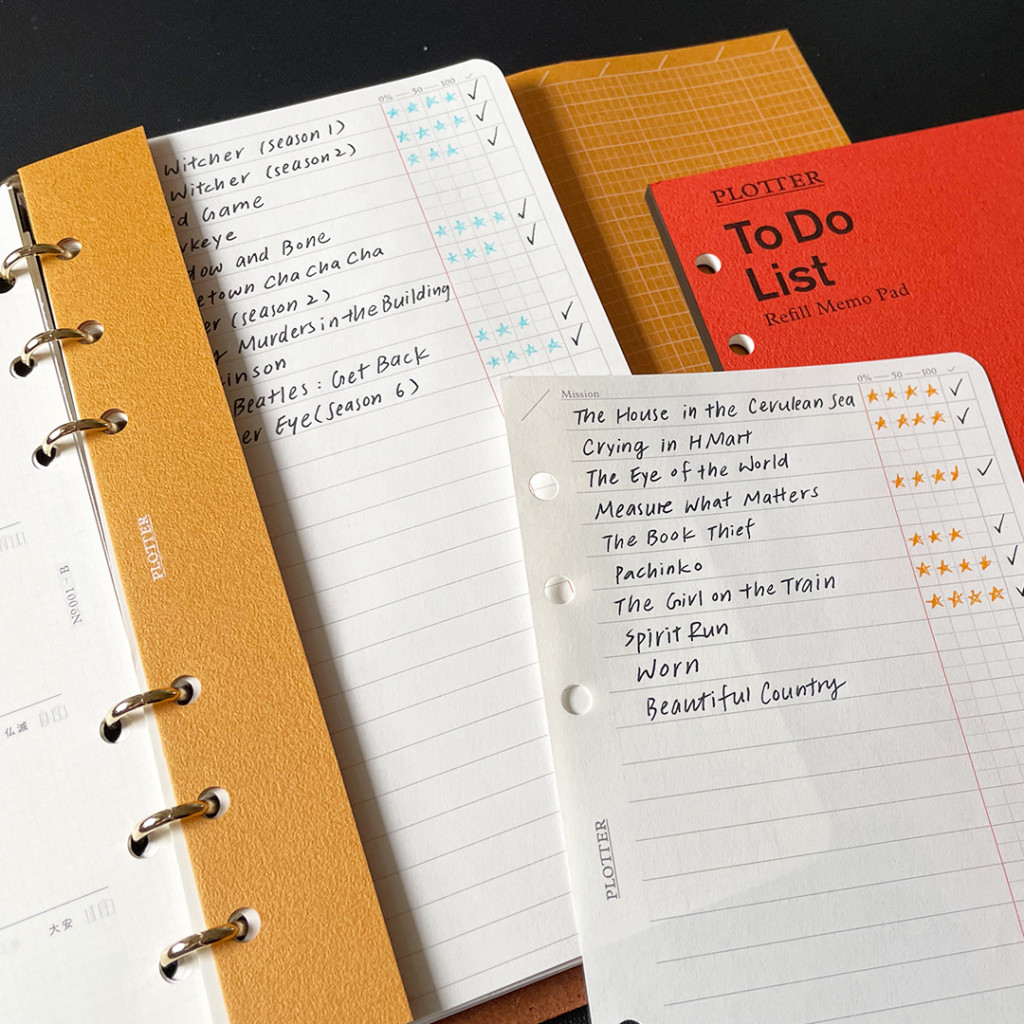 0% — 50 — 100 ✓
Witcher (season 1)
Witcher (season 2)
Game
and Bone
Cha Cha Cha
(season 2)
Murders in the Building
Beatles: Get Back
Eye (season 6)
PLOTTER
No001-B
仏滅
大安
PLOTTER
To Do
List
Refill Memo Pad
Mission
0% — 50 — 100 ✓
The House in the Cerulean Sea
Crying in H Mart
The Eye of the World
Measure What Matters
The Book Thief
Pachinko
The Girl on the Train
Spirit Run
Worn
Beautiful Country
PLOTTER